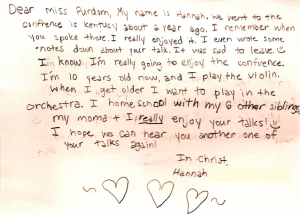 Dear miss Purdom, My name is Hannah. We went to the
confrence is kentucky about a year ago. I remember when
you spoke there. I really enjoyed it. I even wrote some
notes down about your talk. It was sad to leave.
I'm know I'm really going to enjoy the confrence.
I'm 10 years old now, and I play the violin.
When I get older I want to play in the
orchestra. I homeschool with my 6 other sibling
my moma + I really enjoy your talks!
I hope we can hear you another one of
your talks again!
In Christ,
Hannah